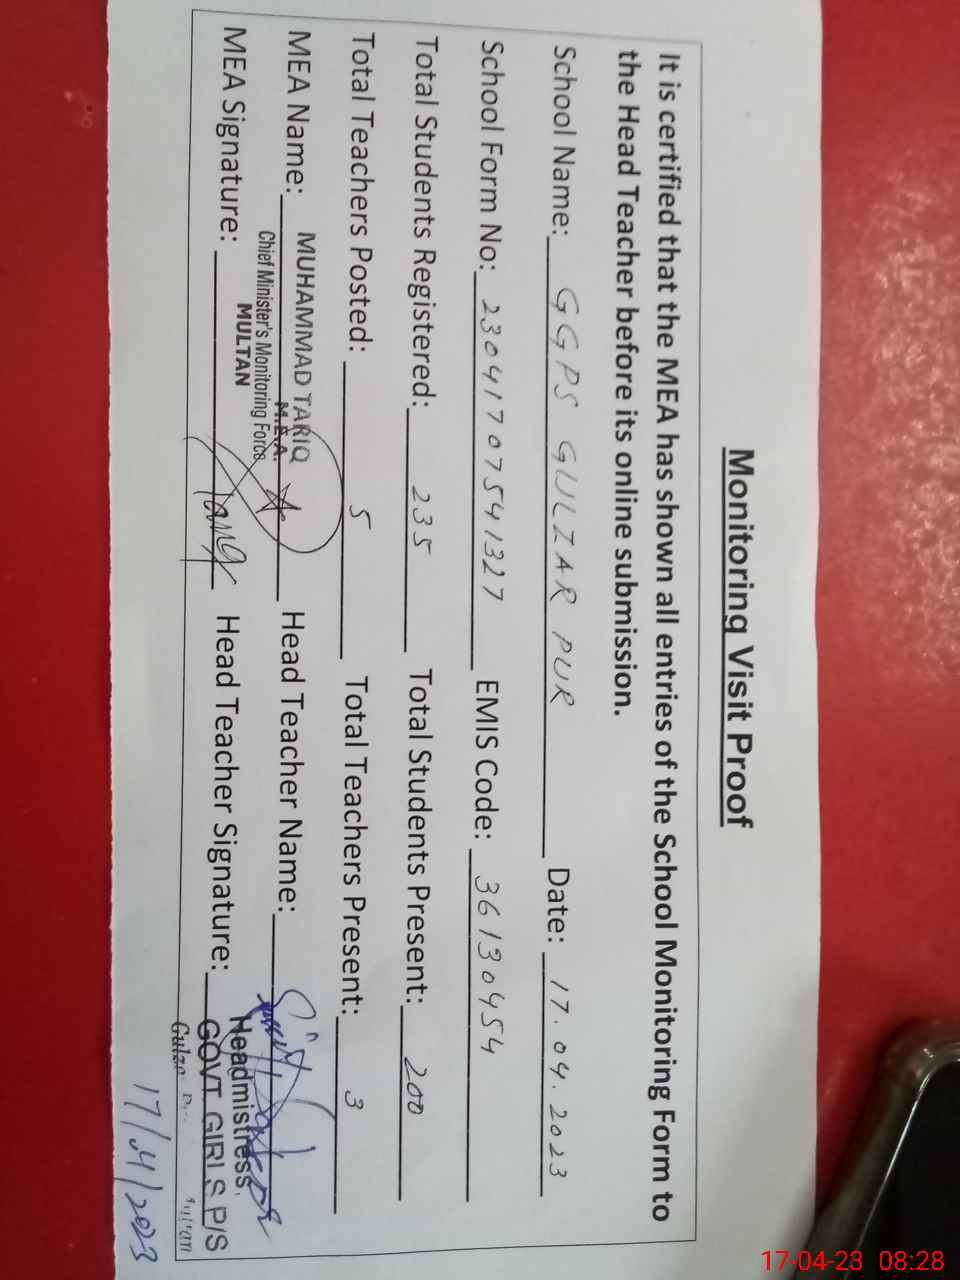 Monitoring Visit Proof
It is certified that the MEA has shown all entries of the School Monitoring Form to
the Head Teacher before its online submission.
School Name: GGPS GULZAR PUR Date: 17.04.2023
School Form No: 23041707541327 EMIS Code: 36130454
Total Students Registered: 235 Total Students Present: 200
Total Teachers Posted: 5 Total Teachers Present: 3
MEA Name: MUHAMMAD TARIQ Head Teacher Name:
M.E.A.
Chief Minister's Monitoring Force
MULTAN
MEA Signature: Tariq Head Teacher Signature:
Headmistress
GOVT GIRLS P/S
17/04/2023
17-04-23 08:28